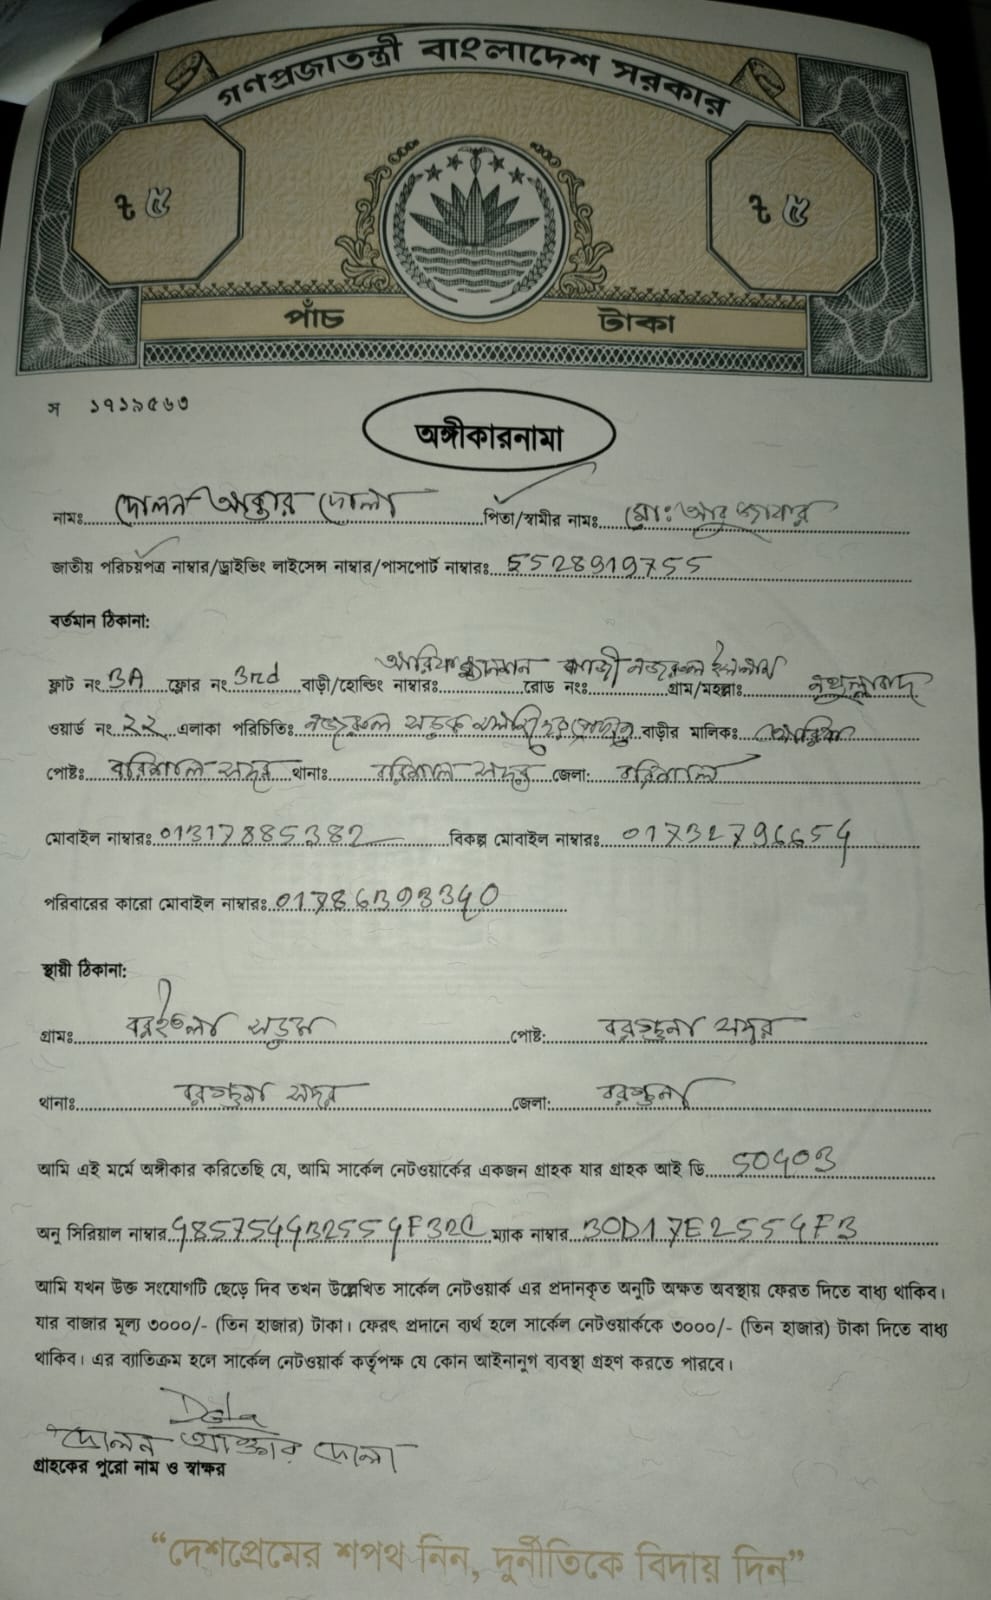 গণপ্রজাতন্ত্রী বাংলাদেশ সরকার
৳ ৫ ৳ ৫
পাঁচ টাকা
স ১৭১৯৫৬৩
অঙ্গীকারনামা
নামঃ দোলন আক্তার দোলা পিতা/স্বামীর নামঃ মোঃ আবু জাফার
জাতীয় পরিচয়পত্র নাম্বার/ড্রাইভিং লাইসেন্স নাম্বার/পাসপোর্ট নাম্বারঃ 5528919755
বর্তমান ঠিকানা:
ফ্লাট নং 3A ফ্লোর নং 3rd বাড়ী/হোল্ডিং নাম্বারঃ আরিফ ম্যানশন রোড নংঃ কাজী নজরুল ইসলাম গ্রাম/মহল্লাঃ নথুল্লাবাদ
ওয়ার্ড নং ২২ এলাকা পরিচিতিঃ নজরুল সড়ক বাড়ীর মালিকঃ আরিফ
পোষ্টঃ বরিশাল সদর থানাঃ বরিশাল সদর জেলা: বরিশাল
মোবাইল নাম্বারঃ 01317885382 বিকল্প মোবাইল নাম্বারঃ 01732796654
পরিবারের কারো মোবাইল নাম্বারঃ 01786393340
স্থায়ী ঠিকানা:
গ্রামঃ বরইতলা সড়ক পোষ্ট: বরগুনা সদর
থানাঃ বরগুনা সদর জেলা: বরগুনা
আমি এই মর্মে অঙ্গীকার করিতেছি যে, আমি সার্কেল নেটওয়ার্কের একজন গ্রাহক যার গ্রাহক আই ডি 50403
অনু সিরিয়াল নাম্বার 485754432554F32C ম্যাক নাম্বার 30D17E2554F3
আমি যখন উক্ত সংযোগটি ছেড়ে দিব তখন উল্লেখিত সার্কেল নেটওয়ার্ক এর প্রদানকৃত অনুটি অক্ষত অবস্থায় ফেরত দিতে বাধ্য থাকিব।
যার বাজার মূল্য ৩০০০/- (তিন হাজার) টাকা। ফেরৎ প্রদানে ব্যর্থ হলে সার্কেল নেটওয়ার্ককে ৩০০০/- (তিন হাজার) টাকা দিতে বাধ্য
থাকিব। এর ব্যাতিক্রম হলে সার্কেল নেটওয়ার্ক কর্তৃপক্ষ যে কোন আইনানুগ ব্যবস্থা গ্রহণ করতে পারবে।
Dola
দোলন আক্তার দোলা
গ্রাহকের পুরো নাম ও স্বাক্ষর
“দেশপ্রেমের শপথ নিন, দুর্নীতিকে বিদায় দিন”